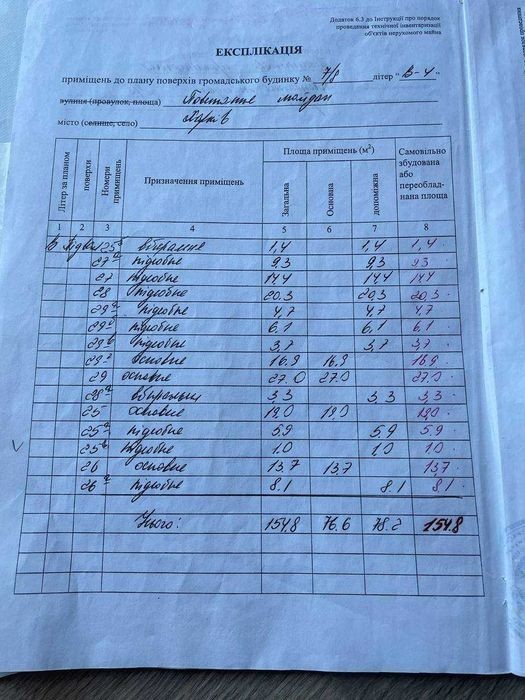 Додаток 6.3 до Інструкції про порядок
проведення технічної інвентаризації
об'єктів нерухомого майна
ЕКСПЛІКАЦІЯ
приміщень до плану поверхів громадського будинку № 7/8 літер "В-4"
вулиця (провулок, площа) майдан
місто (селище, село) Харків
Літер за планом поверхи Номери приміщень Призначення приміщень Площа приміщень (м²) Загальна Основна допоміжна Самовільно збудована або переобладнана площа
1 2 3 4 5 6 7 8
В 25 1,4 1,4 1,4
27а підсобне 9,3 9,3 9,3
27 підсобне 14,4 14,4 14,4
28 підсобне 20,3 20,3 20,3
29а підсобне 4,7 4,7 4,7
29 підсобне 6,1 6,1 6,1
29в підсобне 3,7 3,7 3,7
29г основне 16,9 16,9 16,9
29 основне 27.0 27.0 27.0
28а вбиральня 3,3 3,3 3,3
25 основне 19,0 19,0 19,0
25а підсобне 5.9 5.9 5.9
25в підсобне 1.0 1.0 1.0
26 основне 13.7 13.7 13.7
26а підсобне 8.1 8.1 8.1
154.8 76.6 78.2 154.8